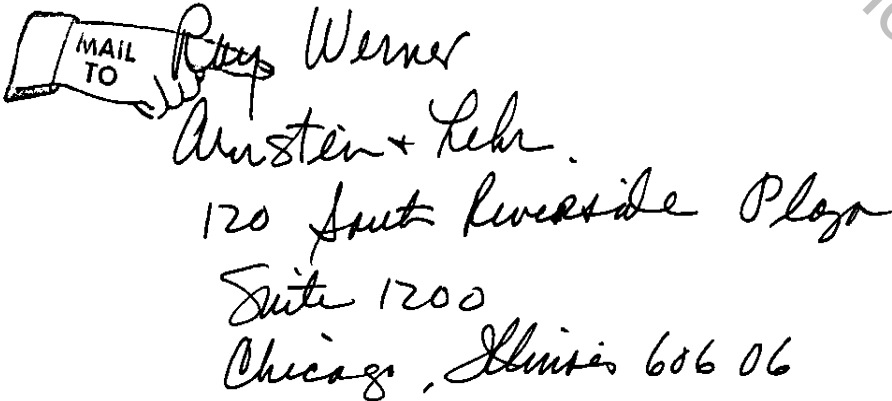 MAIL
TO
Ray Werner
Arnstein + Lehr.
120 South Riverside Plaza
Suite 1200
Chicago, Illinois 60606